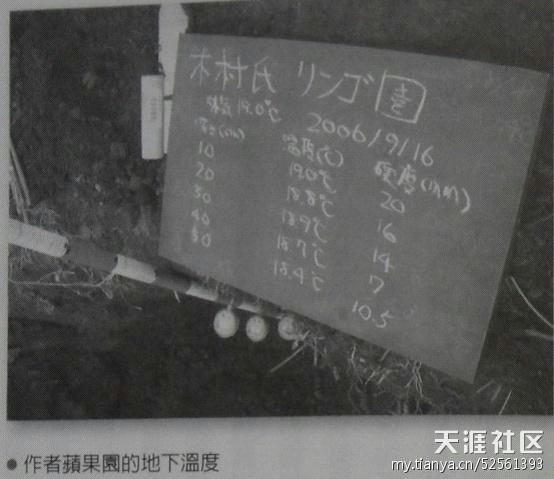 木村氏 リンゴ園
2006/9/16
気温 19.0℃
深さ(cm) 温度(℃) 硬度(mm)
10 19.0℃ 20
20 18.8℃ 16
30 18.9℃ 14
40 18.7℃ 7
50 18.4℃ 10.5
● 作者蘋果園的地下溫度
天涯社区
my.tianya.cn/52561393